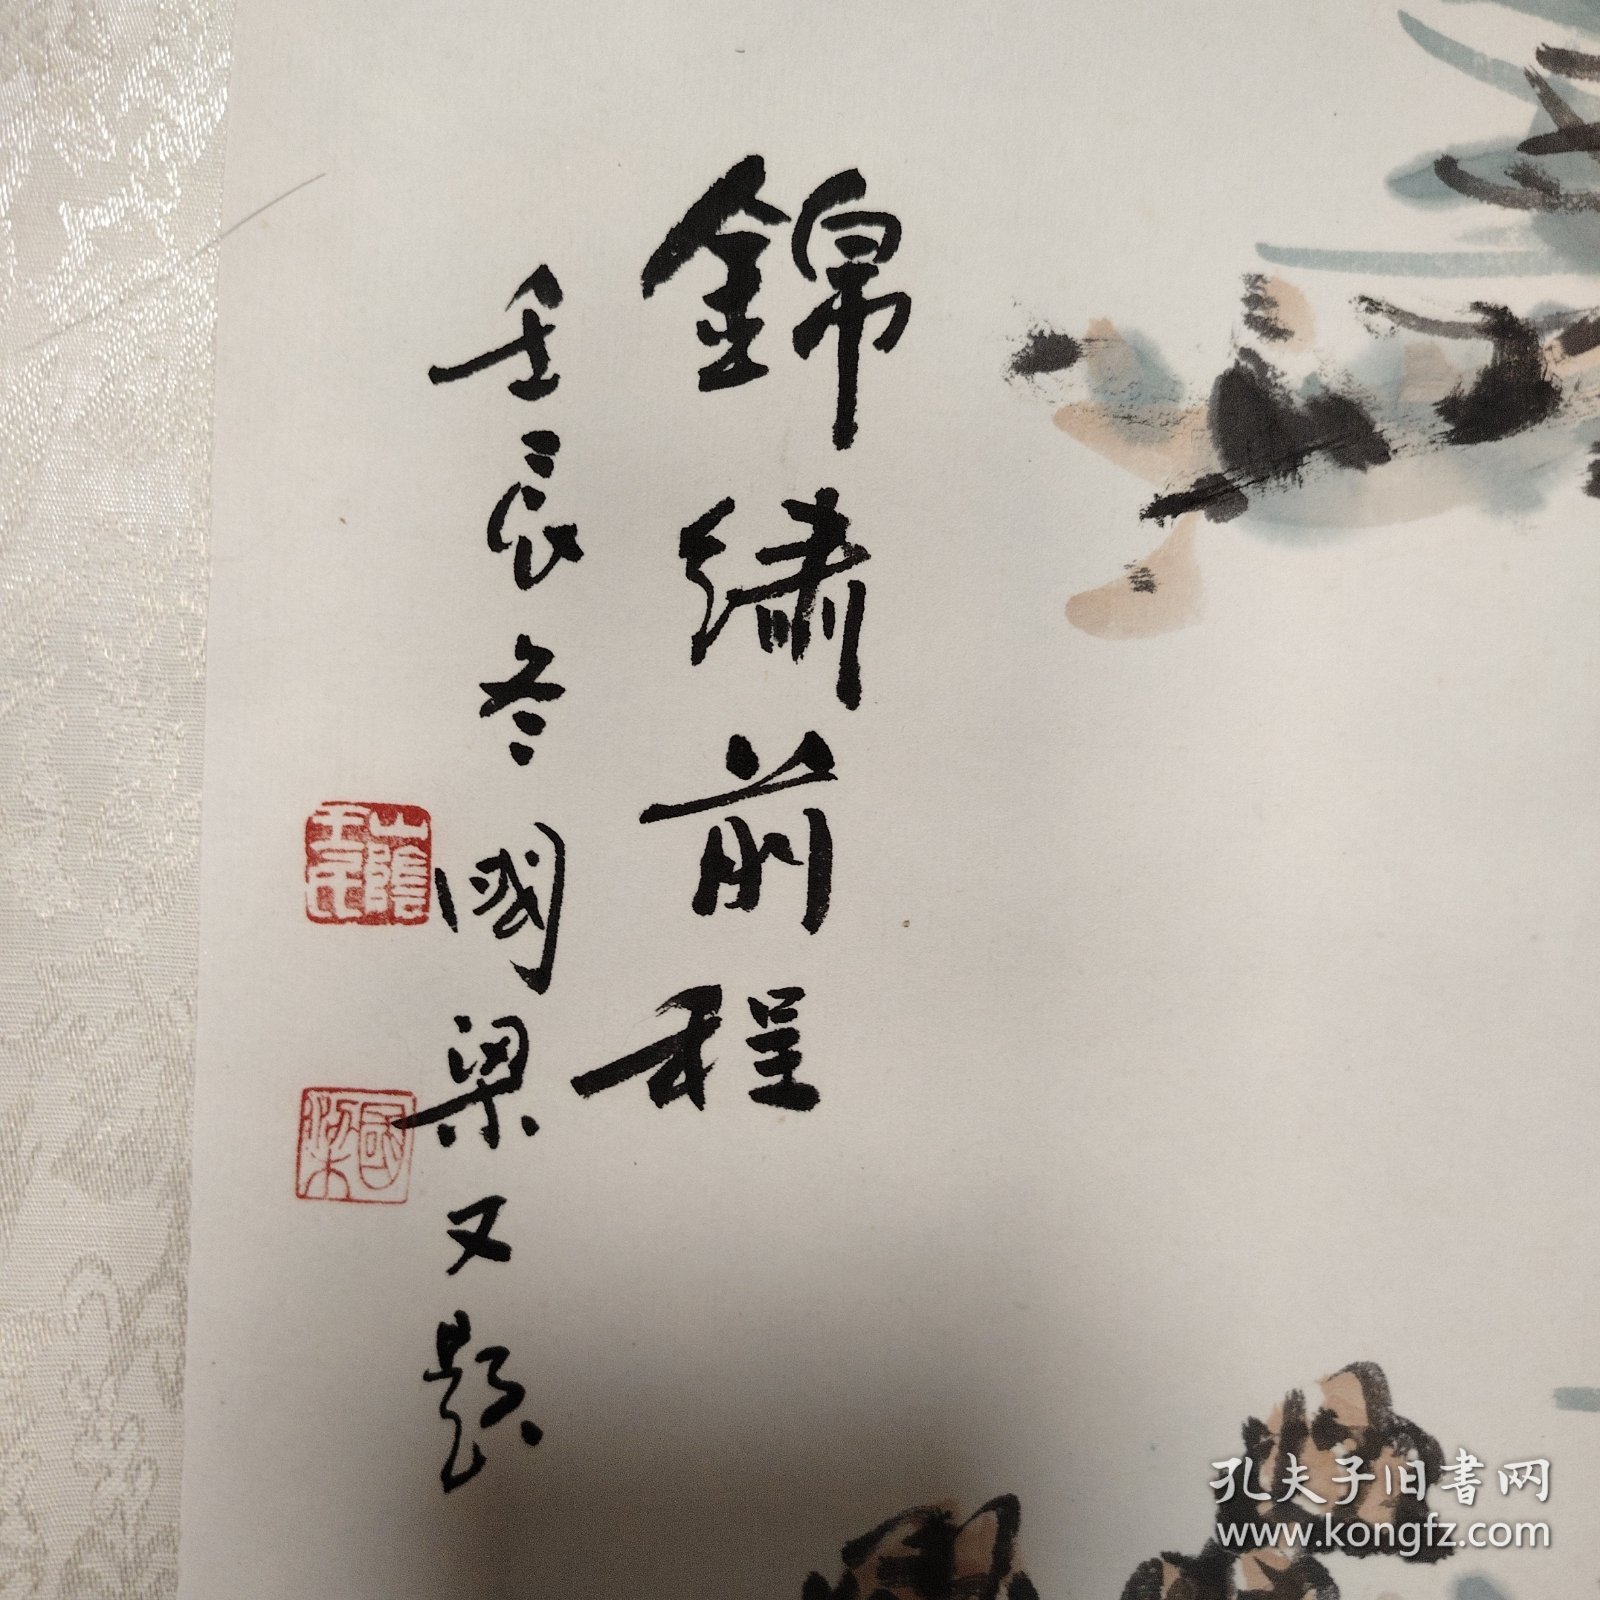 錦繡前程
壬辰冬國梁又題
山陰
國梁
孔夫子旧书网
www.kongfz.com